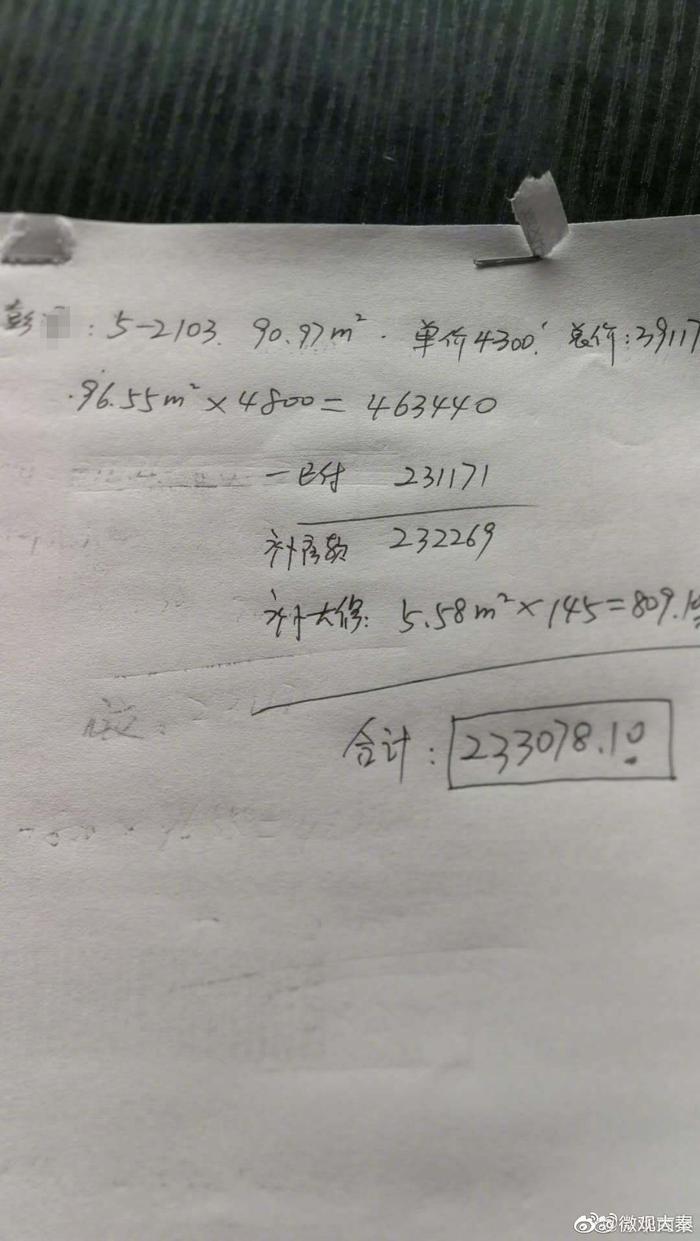 彭 : 5-2103. 90.97m². 单价4300, 总价:39117
.96.55m²×4800=463440
一已付 231171
补房款 232269
补大修: 5.58m²×145=809.10
合计: 233078.10
@微观大秦